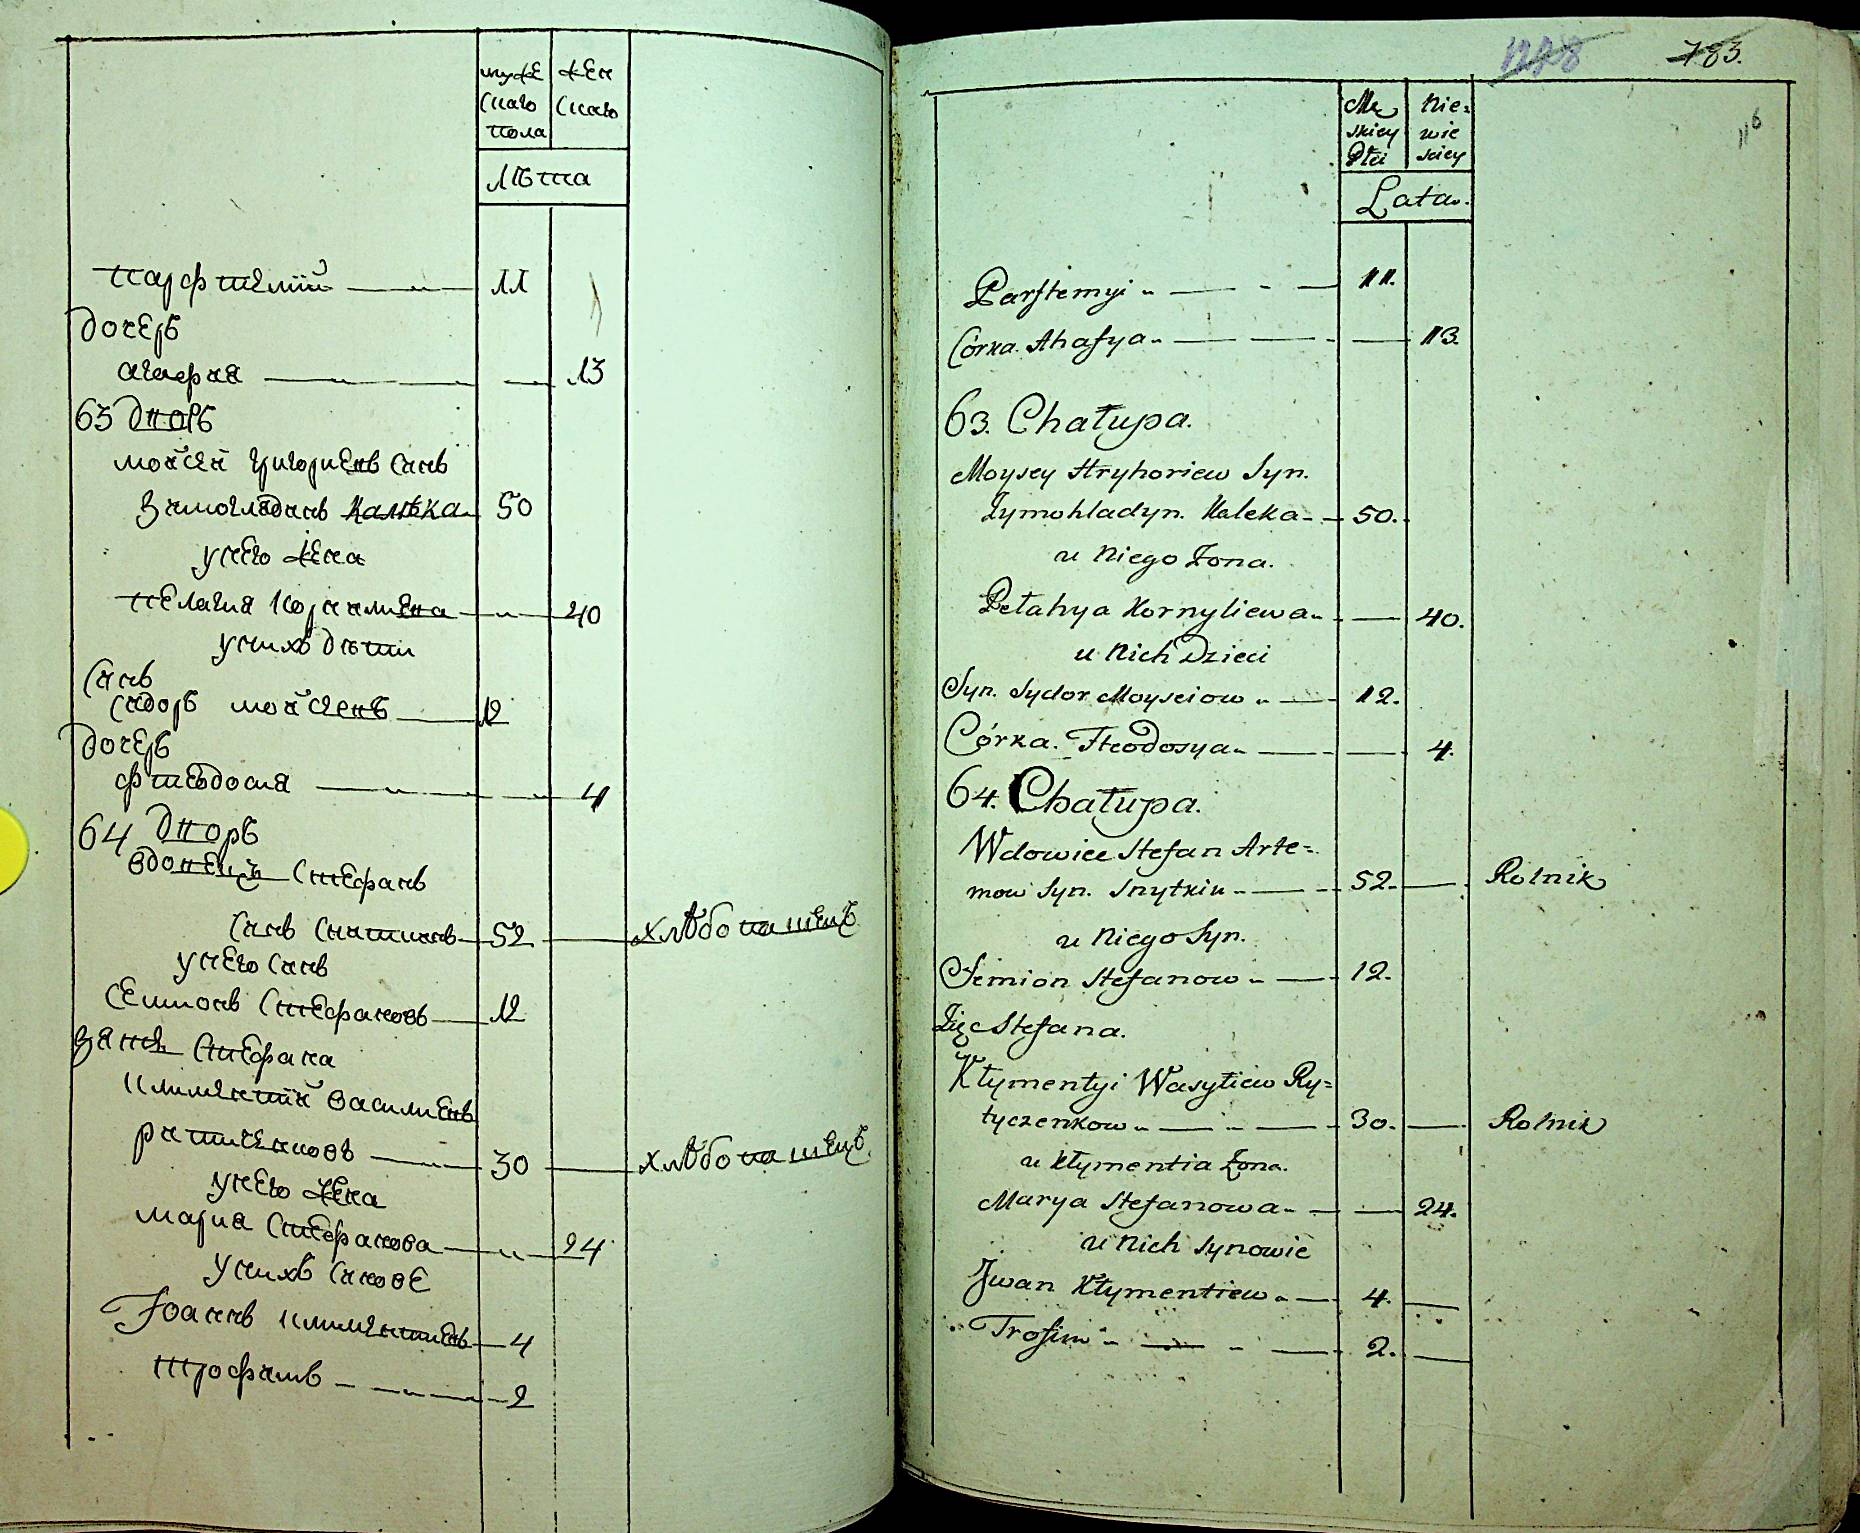 муже жен
скаго скаго
пола
лѣта
парфтемїй 11
дочерь
агафия 13
63 дворъ
мойсей григориевъ синъ
зимоглядинъ калѣка 50
унего жена
пелагия корнилиева 40
унихъ дѣти
синъ
сидоръ мойсеевъ 12
дочерь
фтеодосия 4
64 дворъ
вдовецъ стефанъ
синъ сниткинъ 52 хлѣбопашецъ
унего синъ
семионъ стефановъ 12
зять стефана
климентий василиевъ
ритиченковъ 30 хлѣбопашецъ
унего жена
мария стефанова 24
унихъ синове
Іоаннъ климентиевъ 4
трофимъ 2
1278 783.
116
Mę Nie=
skiey wie
Płci skiey
Lata.
Parftemyi 11.
Córka. Ahafya 13.
63. Chałupa.
Moysey Hryhoriew Syn.
Zymohladyn. Kaleka 50.
u Niego Żona.
Pełahya Kornyliewa 40.
u Nich Dzieci
Syn. Sydor Moyseiow 12.
Córka. Fteodosya 4.
64. Chałupa.
Wdowiec Stefan Arte=
mow Syn. Snytkin 52. Rolnik
u Niego Syn.
Semion Stefanow 12.
Zięc Stefana.
Kłymentyi Wasyliew Ry=
tyczenkow 30. Rolnik
u Kłymentia Żona.
Marya Stefanowa 24.
u Nich Synowie
Jwan Kłymentiew 4.
Trofim 2.